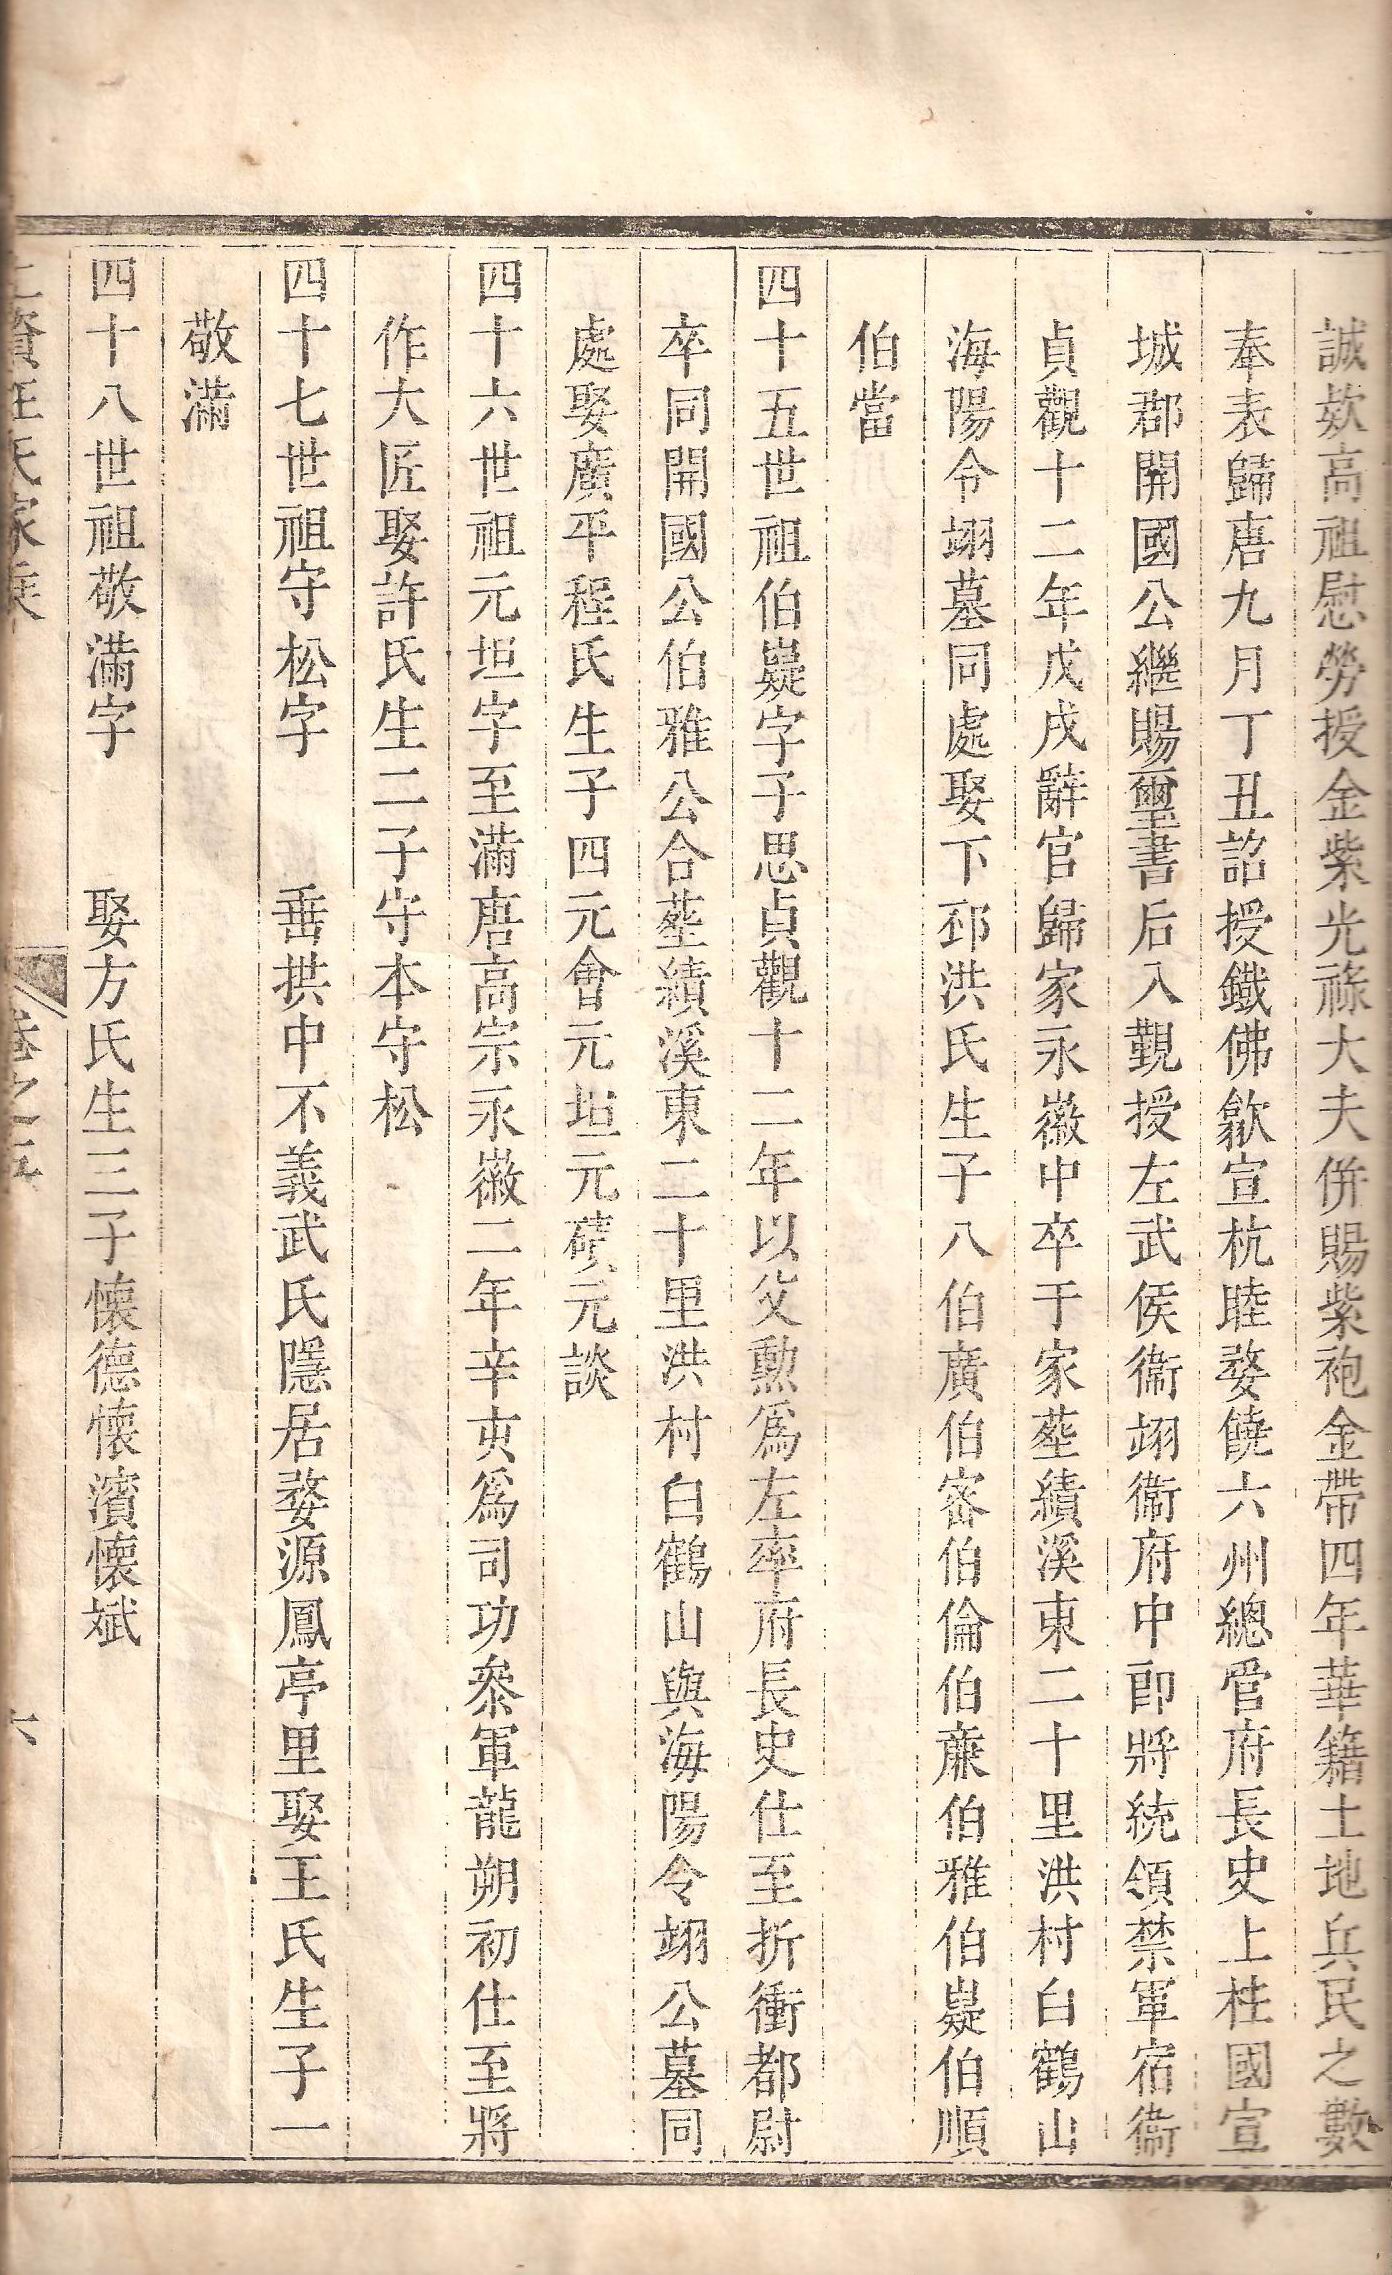 誠欵高祖慰勞授金紫光祿大夫併賜紫袍金帶四年華籍土地兵民之數
奉表歸唐九月丁丑詔授鐵佛歙宣杭睦婺饒六州總管府長史上柱國宣
城郡開國公繼賜璽書后入覲授左武侯衞翊衞府中郎將統領禁軍宿衞
貞觀十二年戊戌辭官歸家永徽中卒于家塟績溪東二十里洪村白鶴山
海陽令翊墓同處娶下邳洪氏生子八伯廣伯密伯倫伯亷伯雅伯嶷伯順
伯當
四十五世祖伯嶷字子思貞觀十二年以父勲爲左率府長史仕至折衝都尉
卒同開國公伯雅公合塟績溪東二十里洪村白鶴山與海陽令翊公墓同
處娶廣平程氏生子四元會元坦元磧元談
四十六世祖元坦字至滿唐高宗永徽二年辛亥爲司功叅軍龍朔初仕至將
作大匠娶許氏生二子守本守松
四十七世祖守松字 垂拱中不義武氏隱居婺源鳳亭里娶王氏生子一
敬滿
四十八世祖敬滿字 娶方氏生三子懷德懷濱懷斌
資汪氏家乘 卷之 六